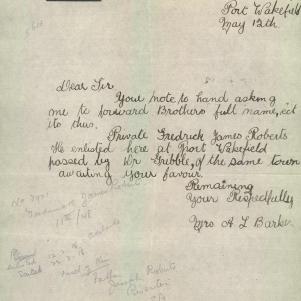 Port Wakefield
May 12th
Dear Sir
Your note to hand asking
me to forward Brothers full name, ect
its thus.
Private Fredrick James Roberts
He enlisted here at Port Wakefield
possed by Dr Gribble, of the same town
awaiting your favour.
Remaining
Your Respectfully
Mrs A L Barker
Joseph Roberts